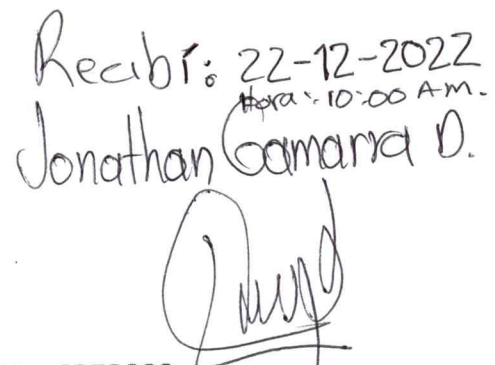 Recibí: 22-12-2022
Hora: 10:00 A.M.
Jonathan Gamarra D.